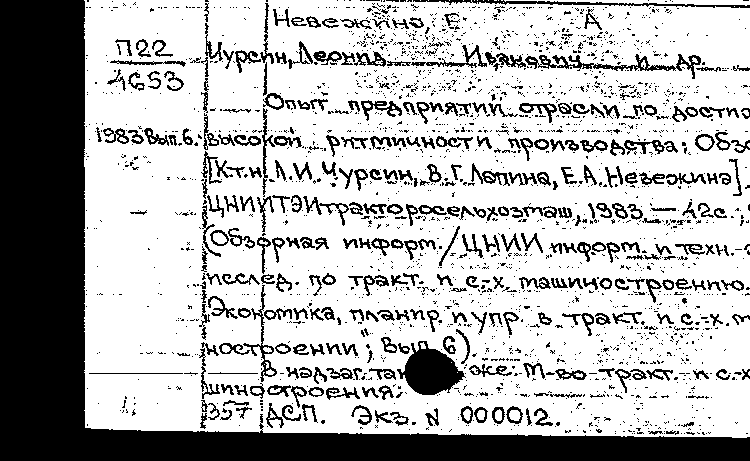 Невежина, Е А
П22
4653
Чурсин, Леонид Иванович и др.
Опыт предприятий отрасли по достиж
1983 Вып.6.
высокой ритмичности производства: Обзо
[К.т.н. Л.И. Чурсин, В.Г. Лапина, Е.А. Невежина].
ЦНИИТЭИтракторосельхозмаш, 1983 — 42с.;
(Обзорная информ./ЦНИИ информ. и техн.-
исслед. по тракт. и с.-х машиностроению.
Экономика, планир. и упр. в тракт. и с.-х. м
ностроении"; Вып. 6).
В надзаг. также: М-во тракт. и с-х
шиностроения.
357 ДСП. Экз. N 000012.